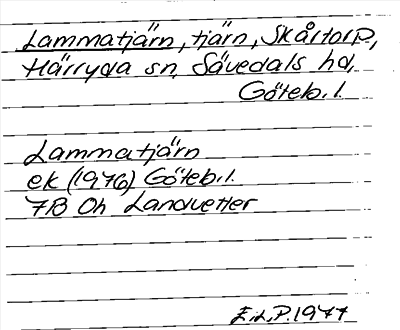 Lammatjärn, tjärn, Skårtorp,
Härryda sn, Sävedals hd,
Göteb. l.
Lammatjärn
ek (1976) Göteb. l.
7B 0h Landvetter
E.L.P. 1977